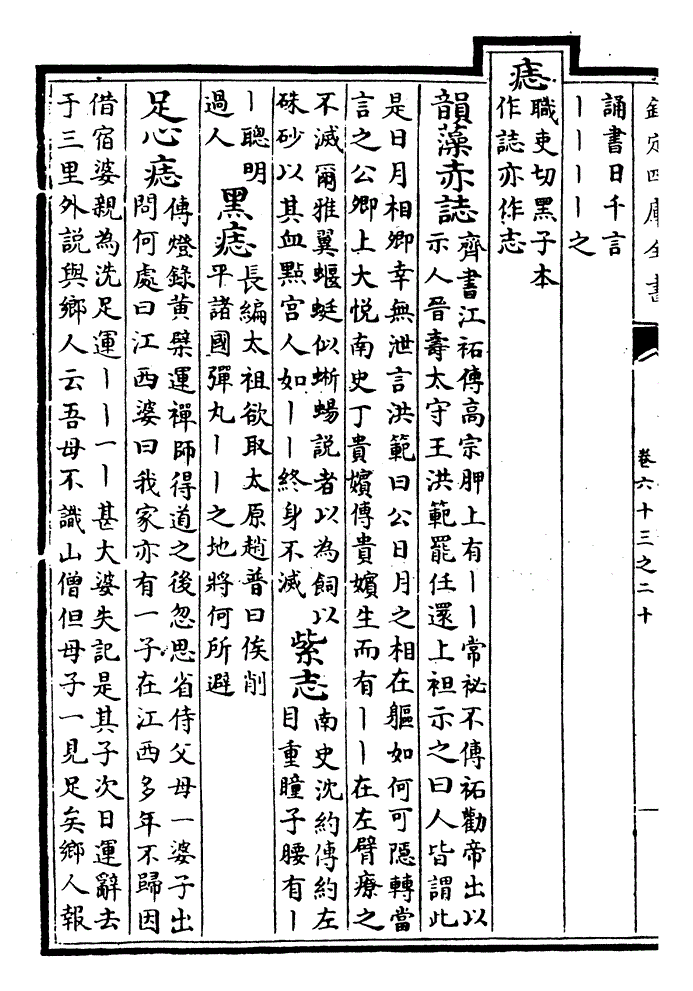 欽定四庫全書 卷六十三之二十 一
誦書日千言
丨丨丨丨之
痣
職吏切黑子本
作誌亦作志
韻藻赤誌
齊書江祏傳高宗胛上有丨丨常祕不傳祏勸帝出以
示人晉壽太守王洪範罷任還上袒示之曰人皆謂此
是日月相卿幸無泄言洪範曰公日月之相在軀如何可隱轉當
言之公卿上大悦南史丁貴嬪傳貴嬪生而有丨丨在左臂療之
不滅爾雅翼蝘蜓似蜥蜴説者以為飼以
硃砂以其血點宫人如丨丨終身不滅
紫志
南史沈約傳約左
目重瞳子腰有丨
丨聰明
過人
黑痣
長編太祖欲取太原趙普曰俟削
平諸國彈丸丨丨之地將何所避
足心痣
傳燈錄黄檗運禪師得道之後忽思省侍父母一婆子出
問何處曰江西婆曰我家亦有一子在江西多年不歸因
借宿婆親為洗足運丨丨一丨甚大婆失記是其子次日運辭去
于三里外説與鄉人云吾母不識山僧但母子一見足矣鄉人報